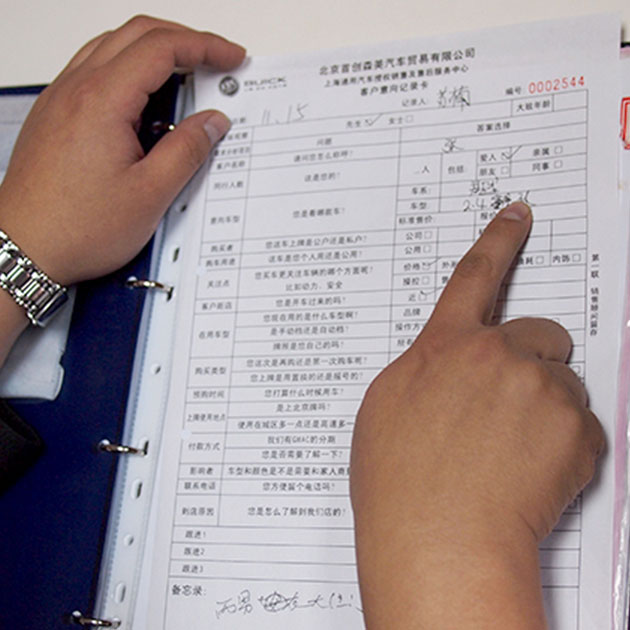 BUICK 北京首创森美汽车贸易有限公司
上海通用汽车授权销售及售后服务中心
客户意向记录卡
编号: 0002544
日期 11.15 记录人:
先生□ 女士□ 大概年龄
问题 答案选择
客户名称 请问您怎么称呼? 张
同行人数 这是您的? 人 包括: 爱人 亲属□
朋友□ 同事□
意向车型 您是看哪款车? 车系:
车型: 2.4
标准售价:
购买者 您这车上牌是公户还是私户? 公司□
购车用途 这车是您个人用还是公用? 公用□
关注点 您买车更关注车辆的哪个方面呢? 价格 耗□ 内饰□
比如动力、安全 操控□
客户距店 您是开车过来的吗? 近□
在用车型 您现在用的是什么车型啊? 品牌
是手动档还是自动档? 操作方
牌照是您自己的吗? 所有
购买类型 您这次是再购还是第一次购车呢?
您上牌是用置换的还是摇号的?
预购时间 您打算什么时候用车?
上牌使用地点 是上北京牌吗?
使用在城区多一点还是高速多一
付款方式 我们有GMAC的分期
您是否需要了解一下?
影响者 车型和颜色是不是需要和家人商量
联系电话 您方便留个电话吗?
到店原因 您是怎么了解到我们店的?
跟进1
跟进2
跟进3
备忘录:
第一联 销售顾问留存